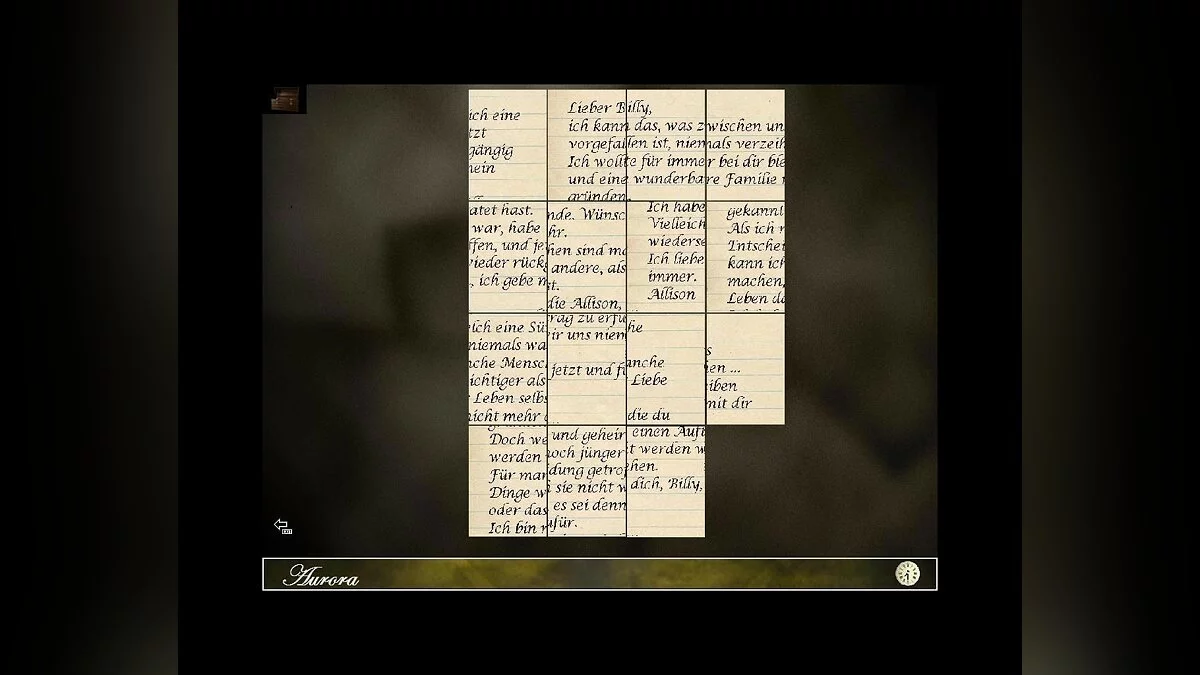 ich eine
tzt
gängig
nein
Lieber Billy,
ich kann das, was zwischen un
vorgefallen ist, niemals verzeih
Ich wollte für immer bei dir ble
und eine wunderbare Familie
gründen.
atet hast.
war, habe
ffen, und je
vieder rück
, ich gebe m
nde. Wünsc
hr.
hen sind
andere, als
t.
die Allison,
Ich habe
Vielleich
wiederse
Ich liebe
immer.
Allison
gekannt
Als ich
Entschei
kann ich
machen,
Leben da
lch eine Sü
niemals wa
che Mensc
ichtiger als
Leben selbs
nicht mehr
rag zu erfü
ir uns niem
jetzt und fü
he
anche
Liebe
die du
s
en ...
iben
mit dir
Doch we
werden
Für man
Dinge w
oder das
Ich bin
und geheir
och jünger
dung getrof
sie nicht w
es sei denn
afür.
einen Auft
t werden w
hen.
dich, Billy,
Aurora